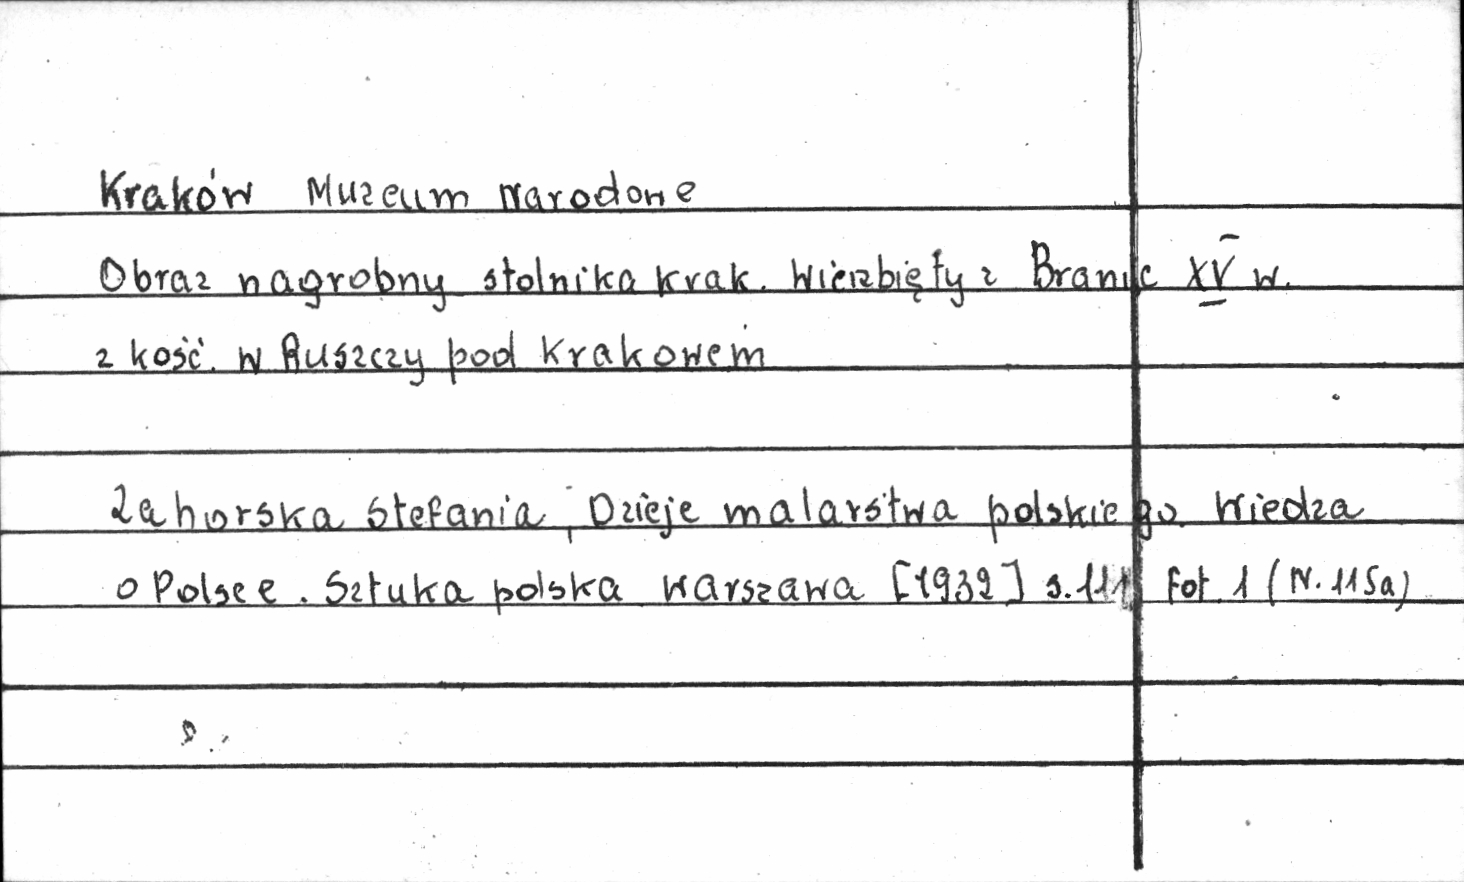 Kraków Muzeum Narodowe
Obraz nagrobny stolnika krak. Wierzbięty z Branic XV w.
z kość. w Ruszczy pod Krakowem
Zahorska Stefania, Dzieje malarstwa polskiego. Wiedza
o Polsce. Sztuka polska Warszawa [1932] s. Fot. 1 (N. 115a)